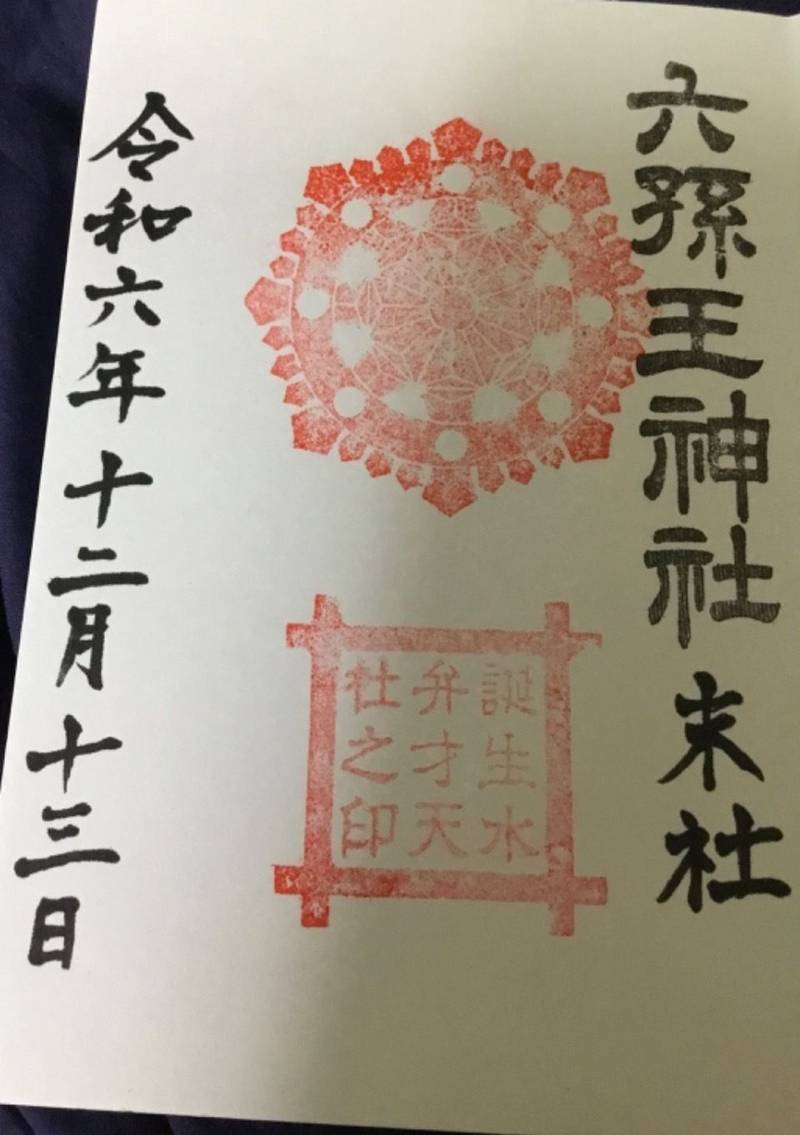 六孫王神社 末社
誕生水
弁才天
社之印
令和六年十二月十三日